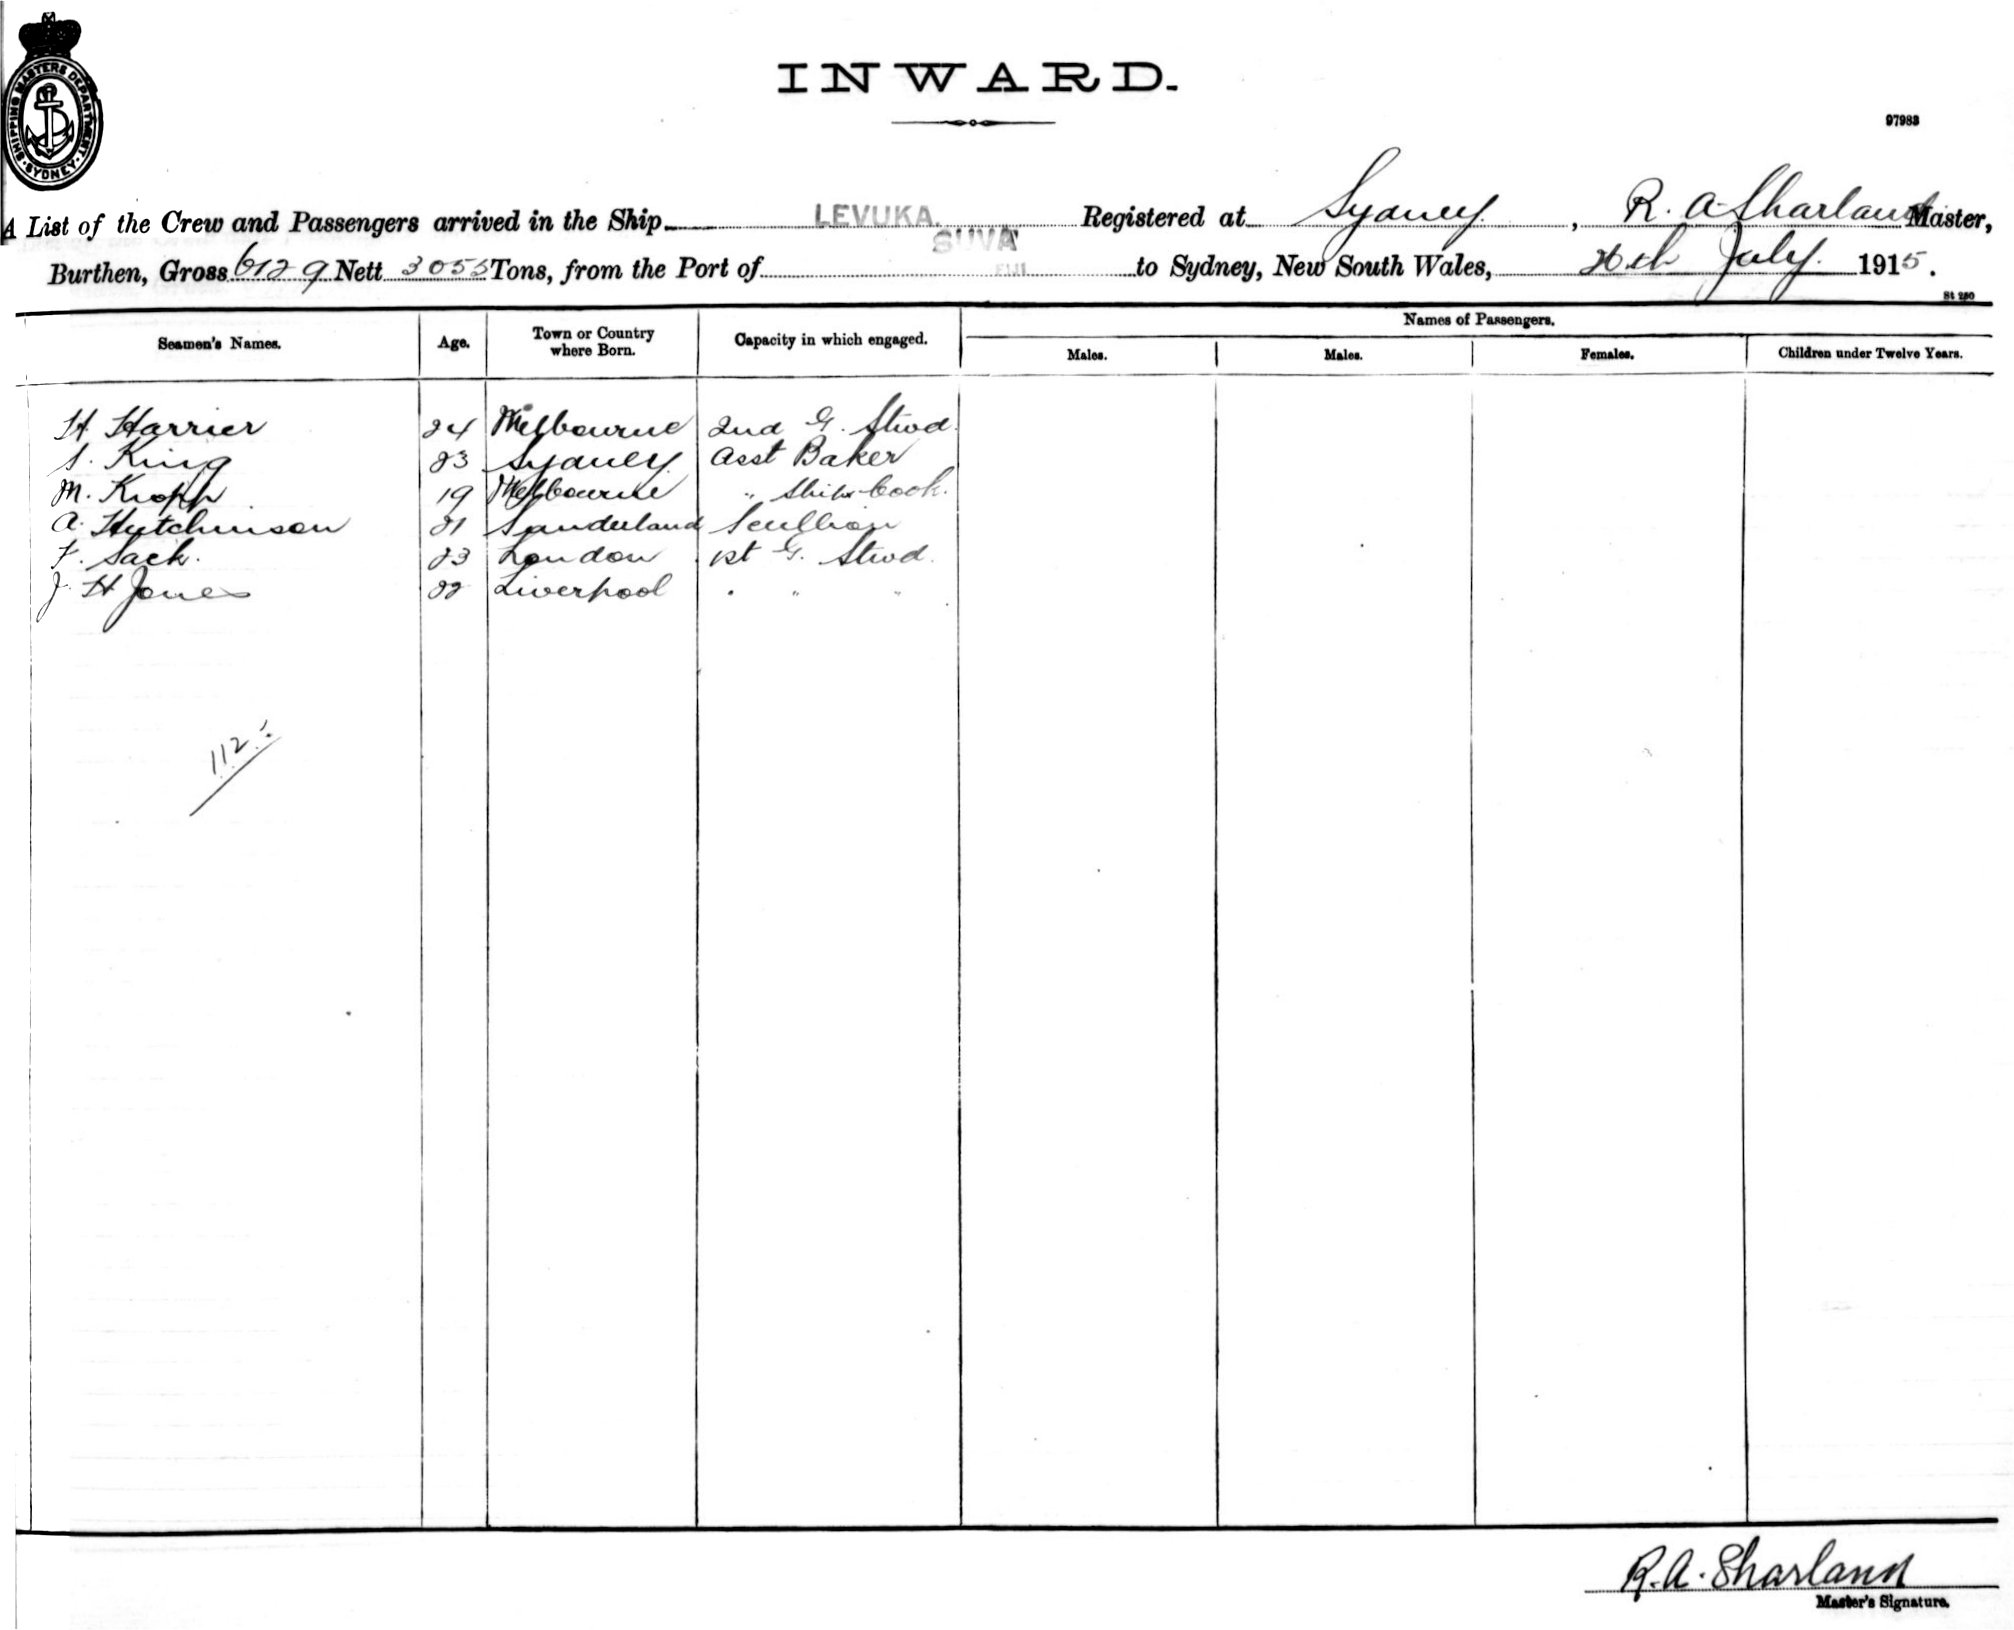 SHIPPING MASTERS DEPARTMENT SYDNEY
INWARD.
97983
A List of the Crew and Passengers arrived in the Ship LEVUKA. Registered at Sydney, R. A. Sharland Master,
SUVA
FIJI
Burthen, Gross 6129 Nett 3055 Tons, from the Port of to Sydney, New South Wales, 26th July. 1915.
St 250
Seamen's Names. Age. Town or Country where Born. Capacity in which engaged. Names of Passengers.
Males. Males. Females. Children under Twelve Years.
H. Harrier 24 Melbourne 2nd G. Stwd.
S. King 23 Sydney Asst Baker
M. Kropp 19 Melbourne " Ships Cook.
A. Hutchinson 21 Sunderland Scullion
F. Sack. 23 London 1st G. Stwd.
J. H Jones 22 Liverpool " " "
112
R.A. Sharland
Master's Signature.